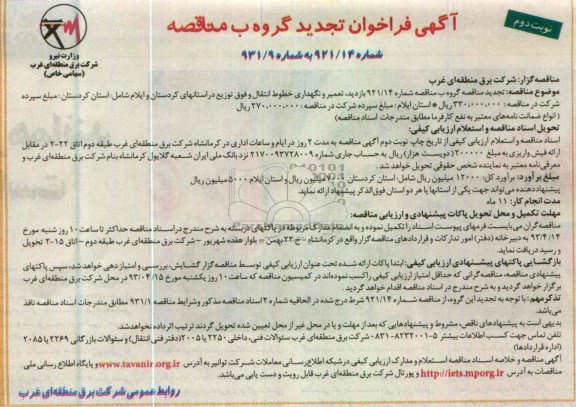 نوبت دوم
آگهی فراخوان تجدید گروه ب مناقصه
شماره ۹۲۱/۱۴ به شماره ۹۳۱/۹
وزارت نیرو
شرکت برق منطقه‌ای غرب
(سهامی خاص)
مناقصه‌گزار: شرکت برق منطقه‌ای غرب
موضوع مناقصه: تجدید مناقصه گروه ب مناقصه شماره ۹۲۱/۱۴ بازدید، تعمیر و نگهداری خطوط انتقال و فوق توزیع در استانهای کردستان و ایلام شامل: استان کردستان: مبلغ سپرده
شرکت در مناقصه: ۳۳۰,۰۰۰,۰۰۰ ریال * استان ایلام: مبلغ سپرده شرکت در مناقصه: ۲۷۰,۰۰۰,۰۰۰ ریال
( انواع ضمانت نامه‌های معتبر به نفع کارفرما مطابق مندرجات اسناد مناقصه)
تحویل اسناد مناقصه و استعلام ارزیابی کیفی:
اسناد مناقصه و استعلام ارزیابی کیفی از تاریخ چاپ نوبت دوم آگهی مناقصه به مدت ۲ روز در ایام و ساعات اداری در کرمانشاه شرکت برق منطقه‌ای غرب طبقه دوم اتاق ۲۲-۲ در مقابل
ارائه فیش واریزی به مبلغ ۲۰۰۰۰۰ (دویست هزار) ریال به حساب جاری شماره ۲۱۷۰۰۹۳۷۲۸۰۰۹ نزد بانک ملی ایران شعبه گلایول کرمانشاه بنام شرکت برق منطقه‌ای غرب و
معرفی‌نامه معتبر به نماینده شخص حقوقی تحویل خواهد شد.
مبلغ برآورد: برآورد کل: ۱۲۰۰۰ میلیون ریال شامل: استان کردستان ۷۰۰۰ میلیون ریال و استان ایلام ۵۰۰۰ میلیون ریال
پیشنهاددهنده می‌تواند جهت یکی از استانها یا هر دو استان فوق‌الذکر پیشنهاد ارائه نماید.
مدت انجام کار: ۱۱ ماه
مهلت تکمیل و محل تحویل پاکات پیشنهادی و ارزیابی مناقصه:
مناقصه گران می‌بایست فرمهای پیوست اسناد را تکمیل نموده و به انضمام مدارک مربوطه در پاکتهای دربسته به شرح مندرج در اسناد مناقصه حداکثر تا ساعت ۱۰ روز شنبه مورخ
۹۳/۴/۱۴ به دبیرخانه (دفتر) امور تدارکات و قراردادهای مناقصه‌گزار واقع در کرمانشاه - ۲۲ بهمن - بلوار هفده شهریور - شرکت برق منطقه‌ای غرب طبقه دوم - اتاق ۱۵-۲ تحویل
و رسید دریافت نماید.
بازگشایی پاکتهای پیشنهادی ارزیابی کیفی: ابتدا پاکات ارائه شده تحت عنوان ارزیابی کیفی توسط مناقصه‌گزار گشایش، بررسی و امتیازدهی خواهد شد، سپس پاکتهای
پیشنهادی مناقصه، مناقصه‌گرانی که حداقل امتیاز ارزیابی کیفی را کسب نموده‌اند در کمیسیون مناقصه که ساعت ۱۰ روز یکشنبه مورخ ۹۳/۰۴/۱۵ در محل شرکت برق منطقه‌ای غرب
برگزار خواهد گردید و به شرح مندرج در اسناد مناقصه اقدام خواهد گردید.
تذکر مهم: با توجه به تجدید این گروه از مناقصه شماره ۹۲۱/۱۴ شرط درج شده در الحاقیه شماره ۲ اسناد مناقصه مذکور و شرایط مناقصه ۹۳۱/۱ مطابق مندرجات اسناد مناقصه نافذ
می‌باشد.
بدیهی است به پیشنهادهای ناقص، مشروط و پیشنهادهایی که بعد از مهلت و یا در محل غیر از محل تعیین شده تحویل گردند ترتیب اثر داده نخواهد شد.
تلفن تماس جهت کسب اطلاعات بیشتر ۵-۸۲۳۲۰۰۱-۰۸۳۱ شرکت برق منطقه‌ای غرب سئوالات فنی، داخلی ۲۲۵۰ یا ۲۰۰۵ (دفتر فنی انتقال) و سئوالات بازرگانی ۲۲۶۹ یا ۲۰۸۵
(اداره قراردادها)
آگهی مناقصه و خلاصه اسناد مناقصه استعلام و مدارک ارزیابی کیفی در شبکه اطلاع رسانی معاملات شرکت توانیر به آدرس www.tavanir.org.ir و پایگاه اطلاع رسانی ملی
مناقصات به آدرس http://iets.mporg.ir و پورتال شرکت برق منطقه‌ای غرب قابل رویت و دست یابی می‌باشد.
روابط عمومی شرکت برق منطقه‌ای غرب